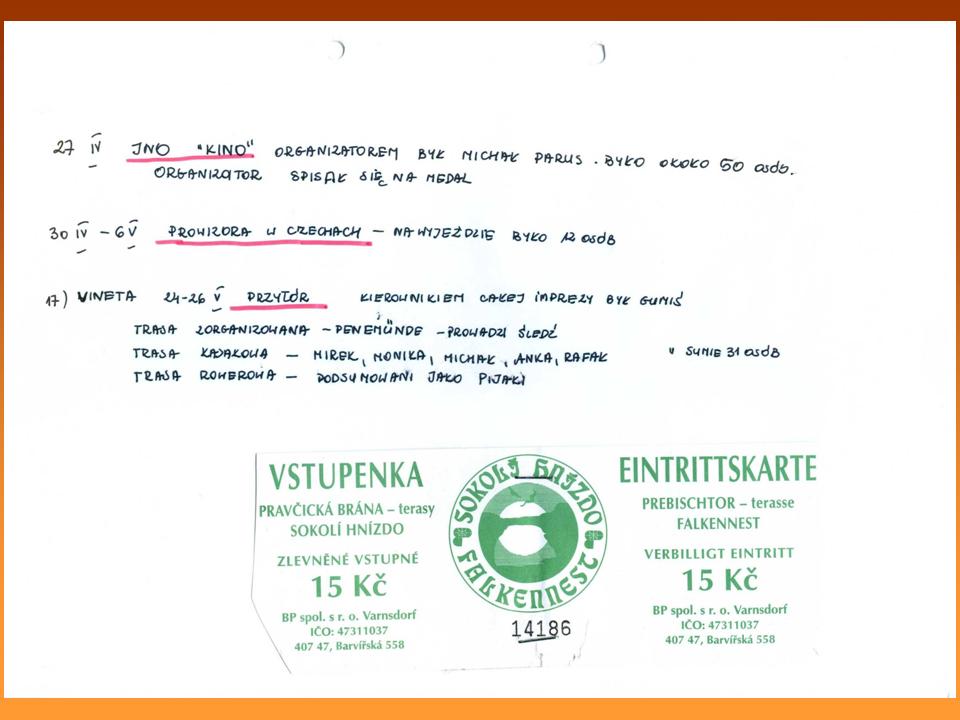 27 IV INO "KINO" ORGANIZATOREM BYŁ MICHAŁ PARUS. BYŁO OKOŁO 50 OSÓB.
ORGANIZATOR SPISAŁ SIĘ NA MEDAL
30 IV – 6 V PROWIZORA W CZECHACH – NA WYJEŹDZIE BYŁO 12 OSÓB
17) VINETA 24-26 V PRZYTÓR KIEROWNIKIEM CAŁEJ IMPREZY BYŁ GUMIŚ
TRASA ZORGANIZOWANA – PENEMÜNDE – PROWADZI ŚLEDŹ
TRASA KAJAKOWA – MIREK, MONIKA, MICHAŁ, ANKA, RAFAŁ W SUMIE 31 OSÓB
TRASA ROWEROWA – PODSUMOWANI JAKO PIJAKI
VSTUPENKA
PRAVČICKÁ BRÁNA – terasy
SOKOLÍ HNÍZDO
ZLEVNĚNÉ VSTUPNÉ
15 Kč
BP spol. s r. o. Varnsdorf
IČO: 47311037
407 47, Barvířská 558
SOKOLÍ HNÍZDO
FALKENNEST
14186
EINTRITTSKARTE
PREBISCHTOR – terasse
FALKENNEST
VERBILLIGT EINTRITT
15 Kč
BP spol. s r. o. Varnsdorf
IČO: 47311037
407 47, Barvířská 558